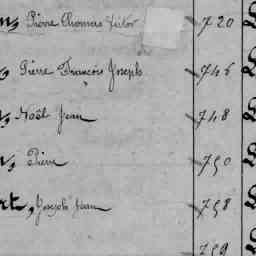 Pierre Thomas Victor 720
Pierre François Joseph 746
Noël Jean 748
Pierre 750
Joseph Jean 758
759